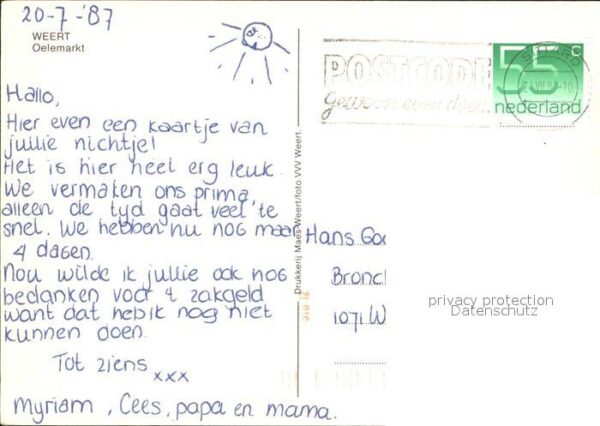 20-7-'87
WEERT
Oelemarkt
Hallo,
Hier even een kaartje van
jullie nichtje!
Het is hier heel erg leuk.
We vermaken ons prima
alleen de tyd gaat veel te
snel. We hebben nu nog maar
4 dagen.
Nou wilde ik jullie ook nog
bedanken voor 't zakgeld
want dat heb ik nog niet
kunnen doen.
Tot ziens
xxx
Myriam, Cees, papa en mama.
Drukkerij Maes Weert/foto VVV Weert
POSTCODE
gewoon even doen
55 c
nederland
Hans
1071
privacy protection
Datenschutz